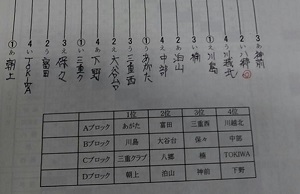 3 あ 神前
2 い 八郷
4 う 川越北
① 川島
3 楠
2 泊山
4 え 中部
① あがた
3 う 三重西
2 え 大谷台
4 あ 下野
① う 三重ク
3 え 保々
2 う 富田
4 い TOKIWA
① あ 朝上
1位 2位 3位 4位
Aブロック あがた 富田 三重西 川越北
Bブロック 川島 大谷台 保々 中部
Cブロック 三重クラブ 八郷 楠 TOKIWA
Dブロック 朝上 泊山 神前 下野